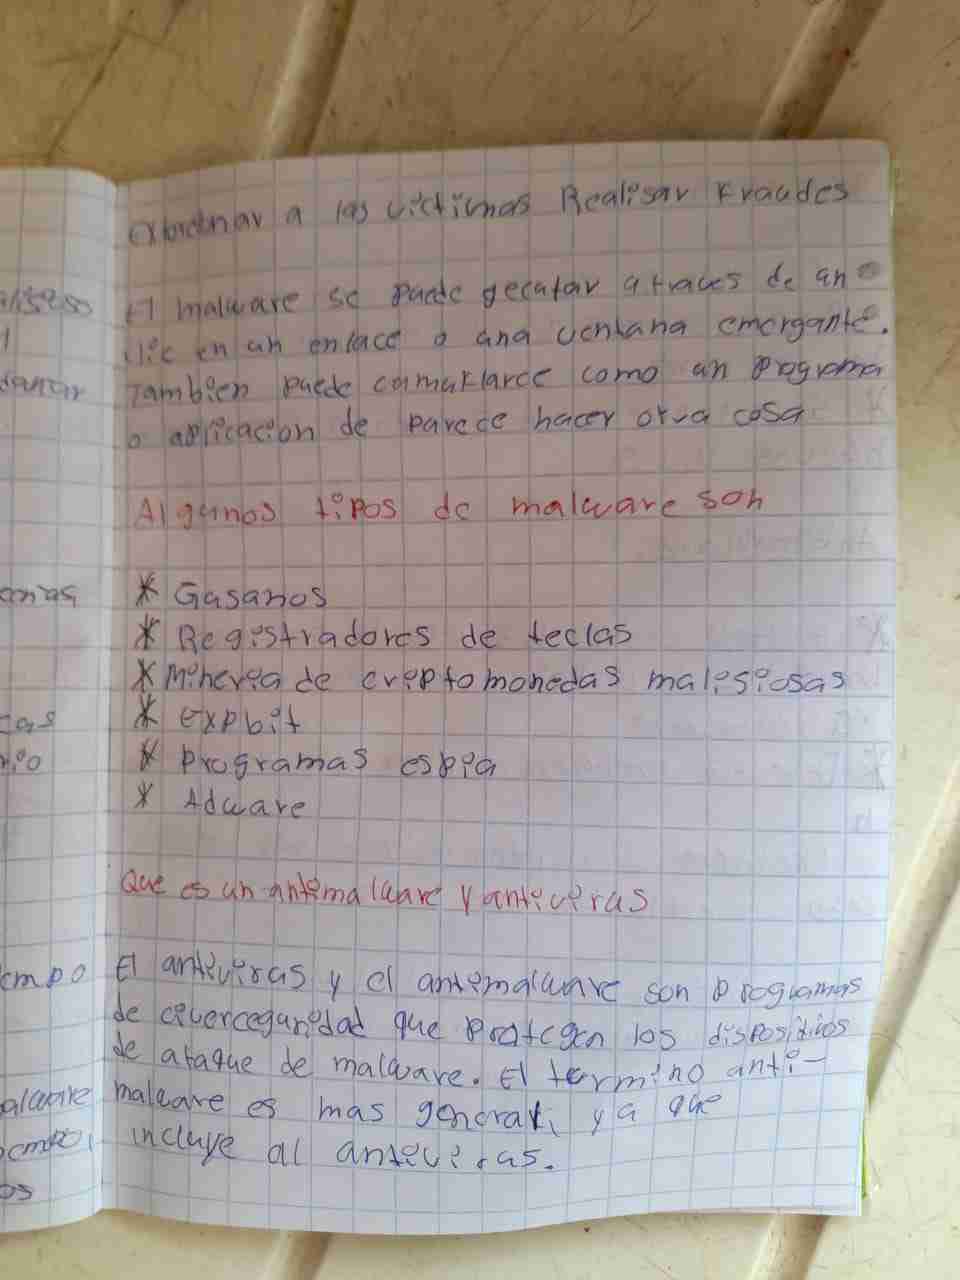 a las victimas Realisar Fraudes
El malware se puede gecutar atraves de an
clic en un enlace o ana ventana emergante.
Tambien puede camuflarce como un programa
o aplicacion de parece hacer otra cosa
Algunos tipos de malware son
* Gasanos
* Registradores de teclas
* Mineria de criptomonedas malisiosas
* Exploit
* programas espia
* Adware
Que es un antimalware y antiviras
El antiviras y el antimalware son programas
de civerceguridad que protegen los dispositivos
de ataque de malware. El termino anti-
malware es mas general, ya que
incluye al antiviras.